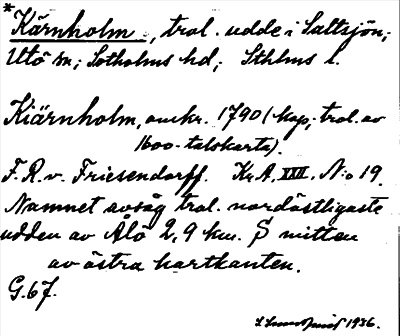 *Kärnholm, trol. udde i Saltsjön;
Utö sn; Sotholms hd; Sthlms l.
Kiärnholm, omkr. 1790 (kop; trol. av
1600-talskarta).
F. R. v. Friesendorff. Kr. A. XXII. N:o 19.
Namnet avsåg trol. nordöstligaste
udden av Ålö 2,9 km. S mitten
av östra kartkanten.
G. 67.
1936.